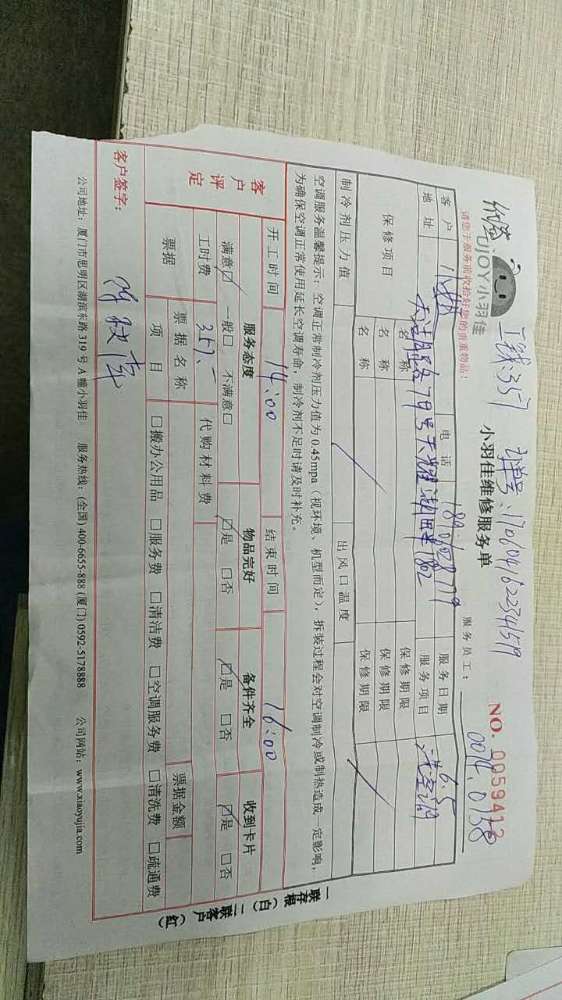 工钱:357
UJOY小羽佳
小羽佳维修服务单
请您于服务前收检好您的贵重物品:
服务员工:
NO. 0059412
客户
电话
服务日期 6.5
地址
服务项目 洗空调
保修项目
名称
保修期限
名称
保修期限
名称
保修期限
制冷剂压力值
出风口温度
空调服务温馨提示:空调正常制冷剂压力值为0.45mpa(视环境、机型而定),拆装过程会对空调制冷或制热造成一定影响,
为确保空调正常使用延长空调寿命,制冷剂不足时请及时补充。
客户评定
开工时间 14:00
结束时间 16:00
服务态度
物品完好
备件齐全
收到卡片
满意☑ 一般□ 不满意□
☑是 □否
☑是 □否
☑是 □否
工时费 357.-
代购材料费
票据
票据名称
票据金额
项目 □搬办公用品 □服务费 □清洁费 □空调服务费 □清洗费 □疏通费
客户签字:
公司地址:厦门市思明区湖滨东路319号A幢小羽佳 服务热线:(全国)400-6655-888 (厦门)0592-5178888 公司网站:www.xiaoyujia.com
一联存根(白) 二联客户(红)